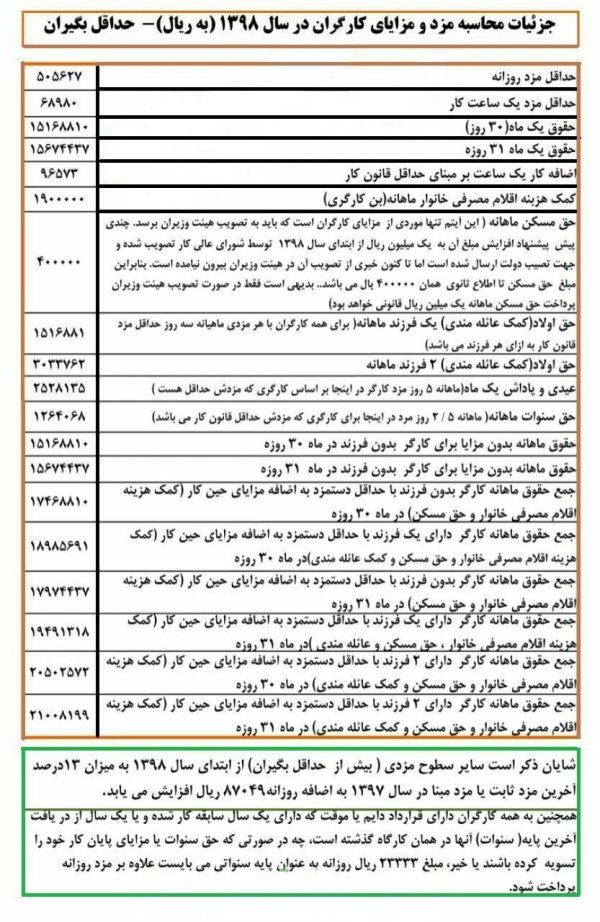 جزئیات محاسبه مزد و مزایای کارگران در سال ۱۳۹۸ (به ریال)– حداقل بگیران
حداقل مزد روزانه ۵۰۵۶۲۷
حداقل مزد یک ساعت کار ۶۸۹۸۰
حقوق یک ماه(۳۰ روز) ۱۵۱۶۸۸۱۰
حقوق یک ماه ۳۱ روزه ۱۵۶۷۴۴۳۷
اضافه کار یک ساعت بر مبنای حداقل قانون کار ۹۶۵۷۳
کمک هزینه اقلام مصرفی خانوار ماهانه(بن کارگری) ۱۹۰۰۰۰۰
حق مسکن ماهانه ( این آیتم تنها موردی از مزایای کارگران است که باید به تصویب هیئت وزیران برسد. چندی
پیش پیشنهاد افزایش مبلغ آن به یک میلیون ریال از ابتدای سال ۱۳۹۸ توسط شورای عالی کار تصویب شده و
جهت تصیب دولت ارسال شده است اما تا کنون خبری از تصویب آن در هیئت وزیران بیرون نیامده است. بنابراین
مبلغ حق مسکن تا اطلاع ثانوی همان ۴۰۰۰۰۰ یال می باشد.. بدیهی است فقط در صورت تصویب هیئت وزیران
پرداخت حق مسکن ماهانه یک میلین ریال قانونی خواهد بود) ۴۰۰۰۰۰
حق اولاد(کمک عائله مندی) یک فرزند ماهانه( برای همه کارگران با هر مزدی ماهیانه سه روز حداقل مزد
قانون کار به ازای هر فرزند می باشد) ۱۵۱۶۸۸۱
حق اولاد(کمک عائله مندی) ۲ فرزند ماهانه ۳۰۳۳۷۶۲
عیدی و پاداش یک ماه(ماهانه ۵ روز مزد کارگر در اینجا بر اساس کارگری که مزدش حداقل هست ) ۲۵۲۸۱۳۵
حق سنوات ماهانه( ماهانه ۵ / ۲ روز مرد در اینجا برای کارگری که مزدش حداقل قانون کار می باشد) ۱۲۶۴۰۶۸
حقوق ماهانه بدون مزایا برای کارگر بدون فرزند در ماه ۳۰ روزه ۱۵۱۶۸۸۱۰
حقوق ماهانه بدون مزایا برای کارگر بدون فرزند در ماه ۳۱ روزه ۱۵۶۷۴۴۳۷
جمع حقوق ماهانه کارگر بدون فرزند با حداقل دستمزد به اضافه مزایای حین کار (کمک هزینه
اقلام مصرفی خانوار و حق مسکن) در ماه ۳۰ روزه ۱۷۴۶۸۸۱۰
جمع حقوق ماهانه کارگر دارای یک فرزند با حداقل دستمزد به اضافه مزایای حین کار (کمک
هزینه اقلام مصرفی خانوار و حق مسکن و کمک عائله مندی)در ماه ۳۰ روزه ۱۸۹۸۵۶۹۱
جمع حقوق ماهانه کارگر بدون فرزند با حداقل دستمزد به اضافه مزایای حین کار (کمک هزینه
اقلام مصرفی خانوار و حق مسکن) در ماه ۳۱ روزه ۱۷۹۷۴۴۳۷
جمع حقوق ماهانه کارگر دارای یک فرزند با حداقل دستمزد به اضافه مزایای حین کار (کمک
هزینه اقلام مصرفی خانوار ، حق مسکن و عائله مندی )در ماه ۳۱ روزه ۱۹۴۹۱۳۱۸
جمع حقوق ماهانه کارگر دارای ۲ فرزند با حداقل دستمزد به اضافه مزایای حین کار (کمک هزینه
اقلام مصرفی خانوار و حق مسکن و کمک عائله مندی) در ماه ۳۰ روزه ۲۰۵۰۲۵۷۲
جمع حقوق ماهانه کارگر دارای ۲ فرزند با حداقل دستمزد به اضافه مزایای حین کار (کمک هزینه
اقلام مصرفی خانوار و حق مسکن و کمک عائله مندی) در ماه ۳۱ روزه ۲۱۰۰۸۱۹۹
شایان ذکر است سایر سطوح مزدی ( بیش از حداقل بگیران) از ابتدای سال ۱۳۹۸ به میزان ۱۳درصد
آخرین مزد ثابت یا مزد مبنا در سال ۱۳۹۷ به اضافه روزانه ۸۷۰۴۹ ریال افزایش می یابد.
همچنین به همه کارگران دارای قرارداد دایم یا موقت که دارای یک سال سابقه کار شده و یا یک سال از در یافت
آخرین پایه( سنوات) آنها در همان کارگاه گذشته است، چه در صورتی که حق سنوات یا مزایای پایان کار خود را
تسویه کرده باشند یا خیر، مبلغ ۲۳۳۳۳ ریال روزانه به عنوان پایه سنواتی می بایست علاوه بر مزد روزانه
پرداخت شود.